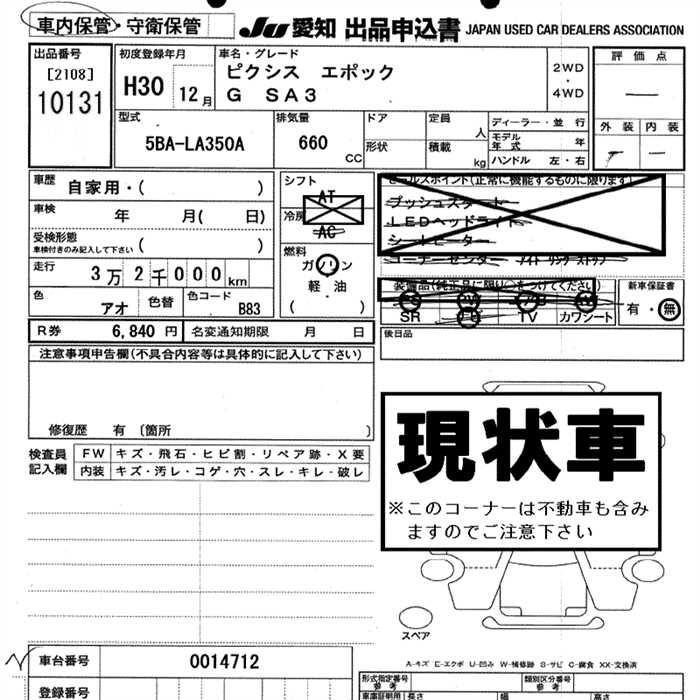 車内保管・守衛保管
JU 愛知 出品申込書 JAPAN USED CAR DEALERS ASSOCIATION
出品番号
[2108]
10131
初度登録年月
H30 12月
車名・グレード
ピクシス エポック
G SA3
2WD
・
4WD
評価点
外装 内装
型式
5BA-LA350A
排気量
660
CC
ドア
形状
定員
人
積載
kg
ディーラー・並行
モデル年式 年
ハンドル 左・右
車歴 自家用・( )
車検 年 月( 日)
受検形態
車検付きのみ記入して下さい ( )
走行 3万2千000km
色 アオ 色替 色コード B83
シフト
AT
冷房
AC
燃料
ガソリン
軽油
( )
セールスポイント(正常に機能するものに限ります)
プッシュスタート
LEDヘッドライト
シートヒーター
コーナーセンサー
装備品(純正品に限り○をつけてください)
SR TV カワシート
新車保証書
有・無
R券 6,840円 名変通知期限 月 日
後日品
注意事項申告欄(不具合内容等は具体的に記入して下さい)
修復歴 有 〔箇所 〕
検査員記入欄
FW キズ・飛石・ヒビ割・リペア跡・X要
内装 キズ・汚レ・コゲ・穴・スレ・キレ・破レ
現状車
※このコーナーは不動車も含み
ますのでご注意下さい
スペア
A-キズ E-エクボ U-凹み W-補修跡 S-サビ C-腐食 XX-交換済
車台番号 0014712
登録番号
形式指定番号
参考
類別区分番号
参考
長さ
幅
高さ